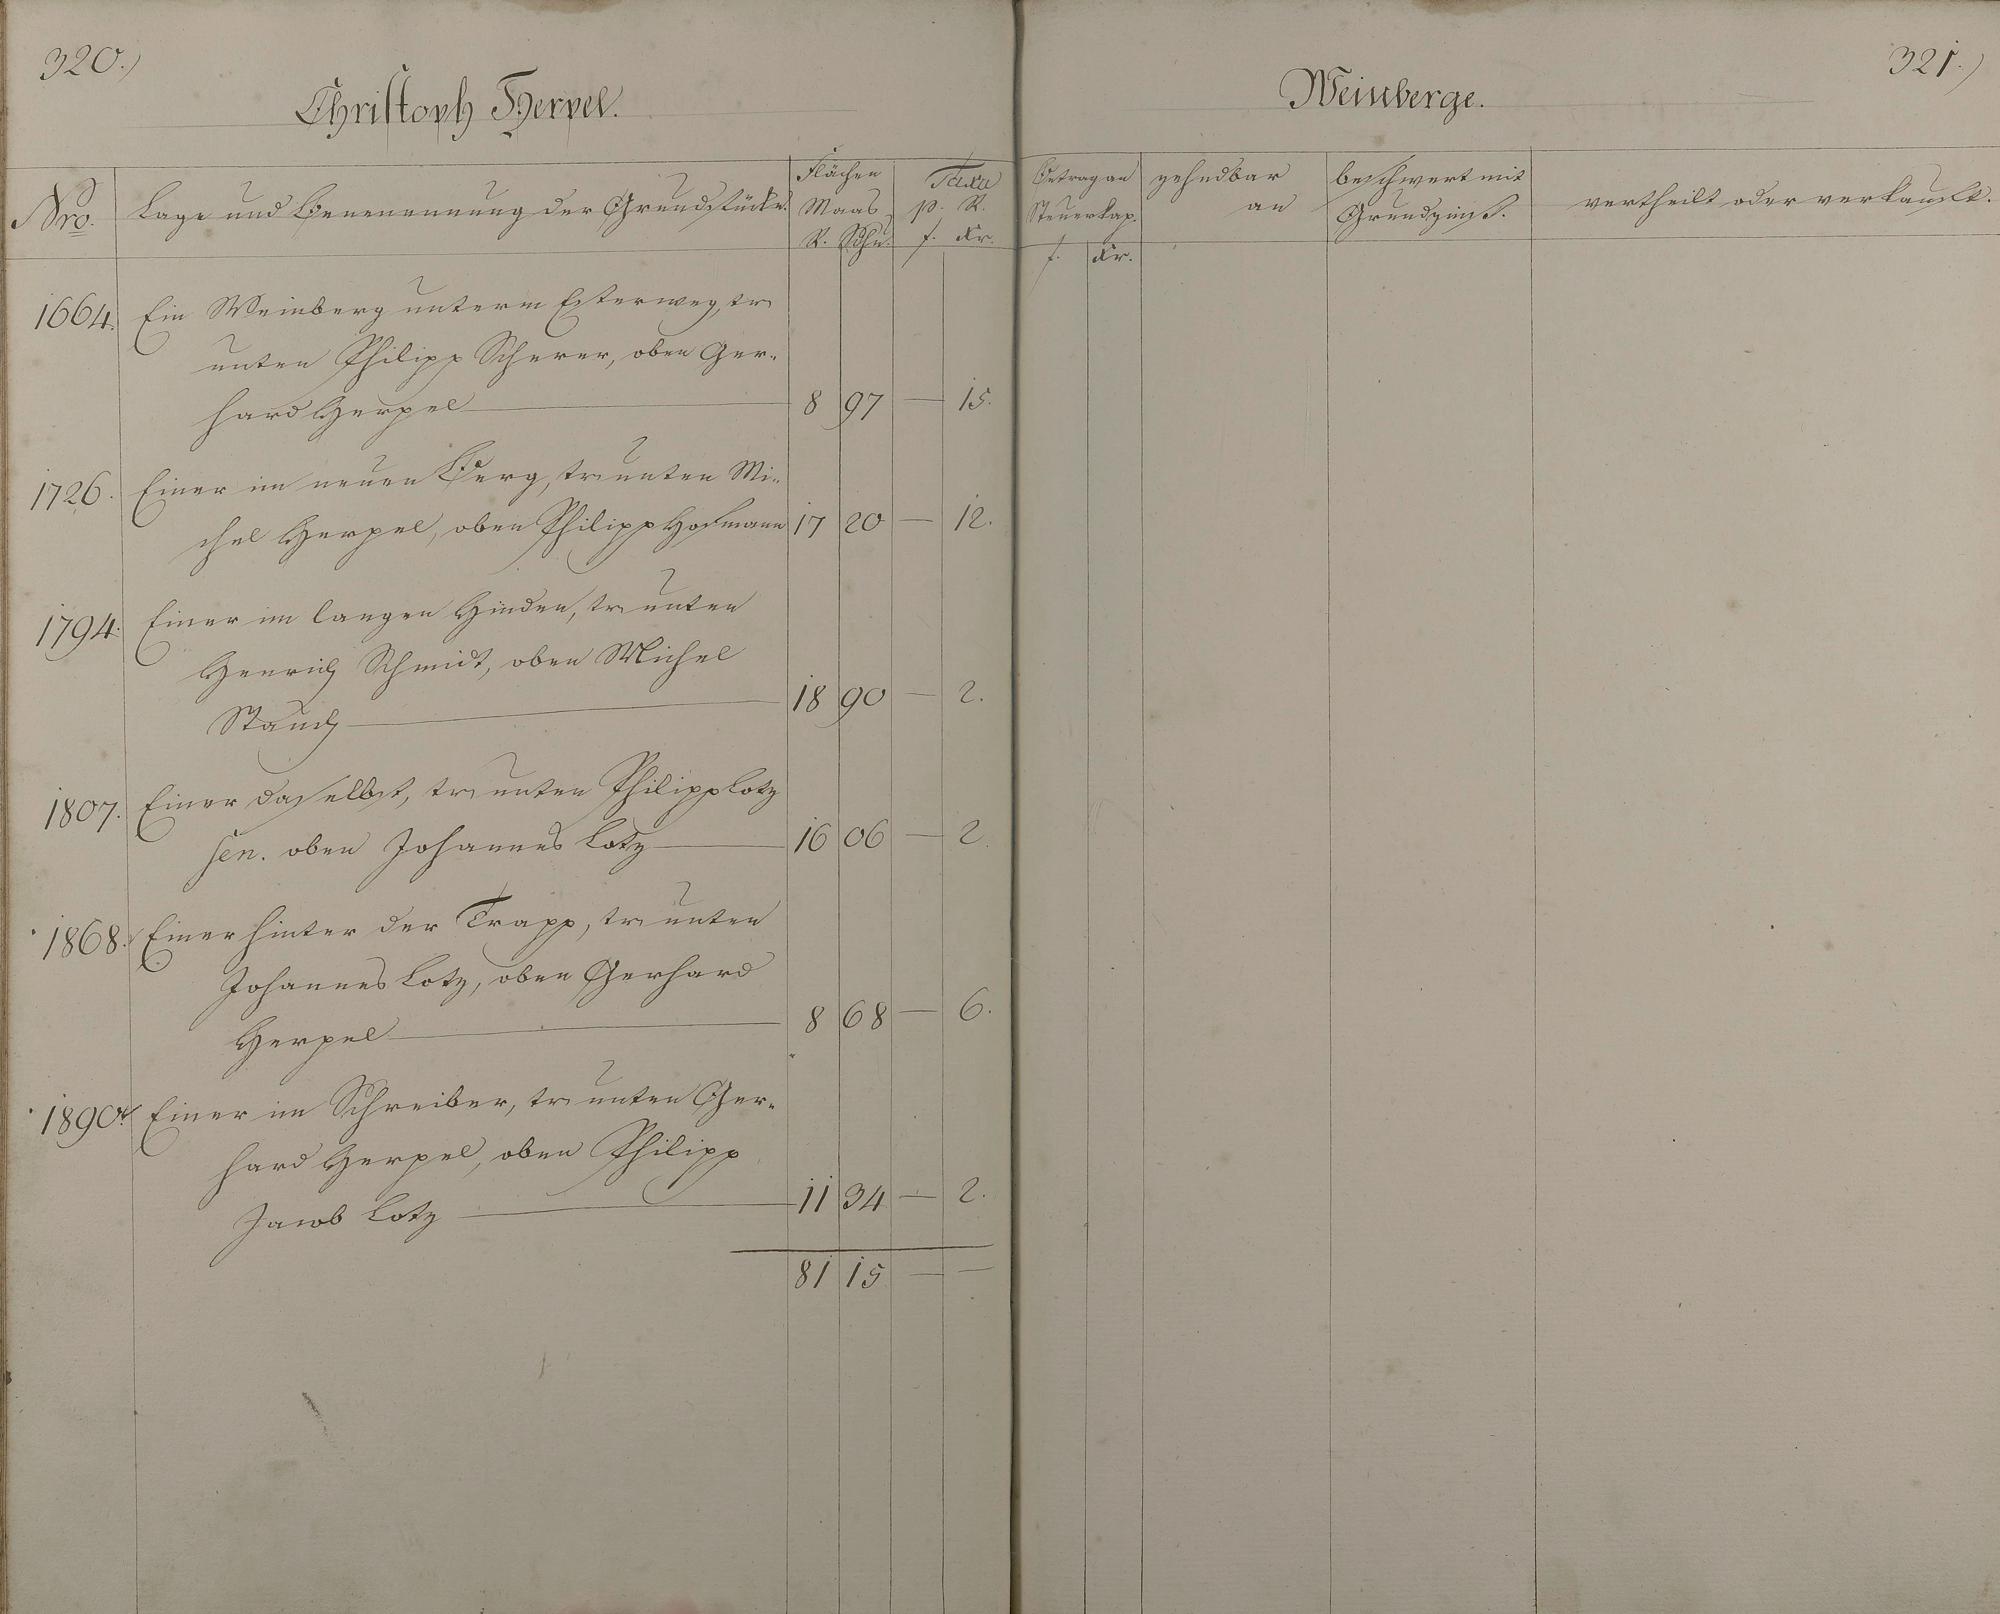 320.)
Christoph Herpel.
Nro.
Lage und Benenennung der Grundstücke.
Flächen
Maas
R. Schu.
Taxa
p. R.
f. Kr.
1664. Ein Weinberg unterm Esterweg,
unten Philipp Scherer, oben Ger-
hard Herpel 8 97 — 15.
1726. Einer im neuen Berg, unten Mi-
chel Herpel, oben Philipp Hofmann 17 20 — 12.
1794. Einer im langen Hinden, unten
Henrich Schmidt, oben Michel
Stauch 18 90 — 2.
1807. Einer daselbst, unten Philipp Lotz
sen. oben Johannes Lotz 16 06 — 2.
1868. Einer hinter der Trapp, unten
Johannes Lotz, oben Gerhard
Herpel 8 68 — 6.
1890. Einer im Schreiber, unten Ger-
hard Herpel, oben Philipp
Jacob Lotz 11 34 — 2.
81 15 — —
321.)
Weinberge.
Betrag an
Steuerkap.
f. Kr.
zehndbar
an
beschwert mit
Grundzinß.
vertheilt oder verkauft.